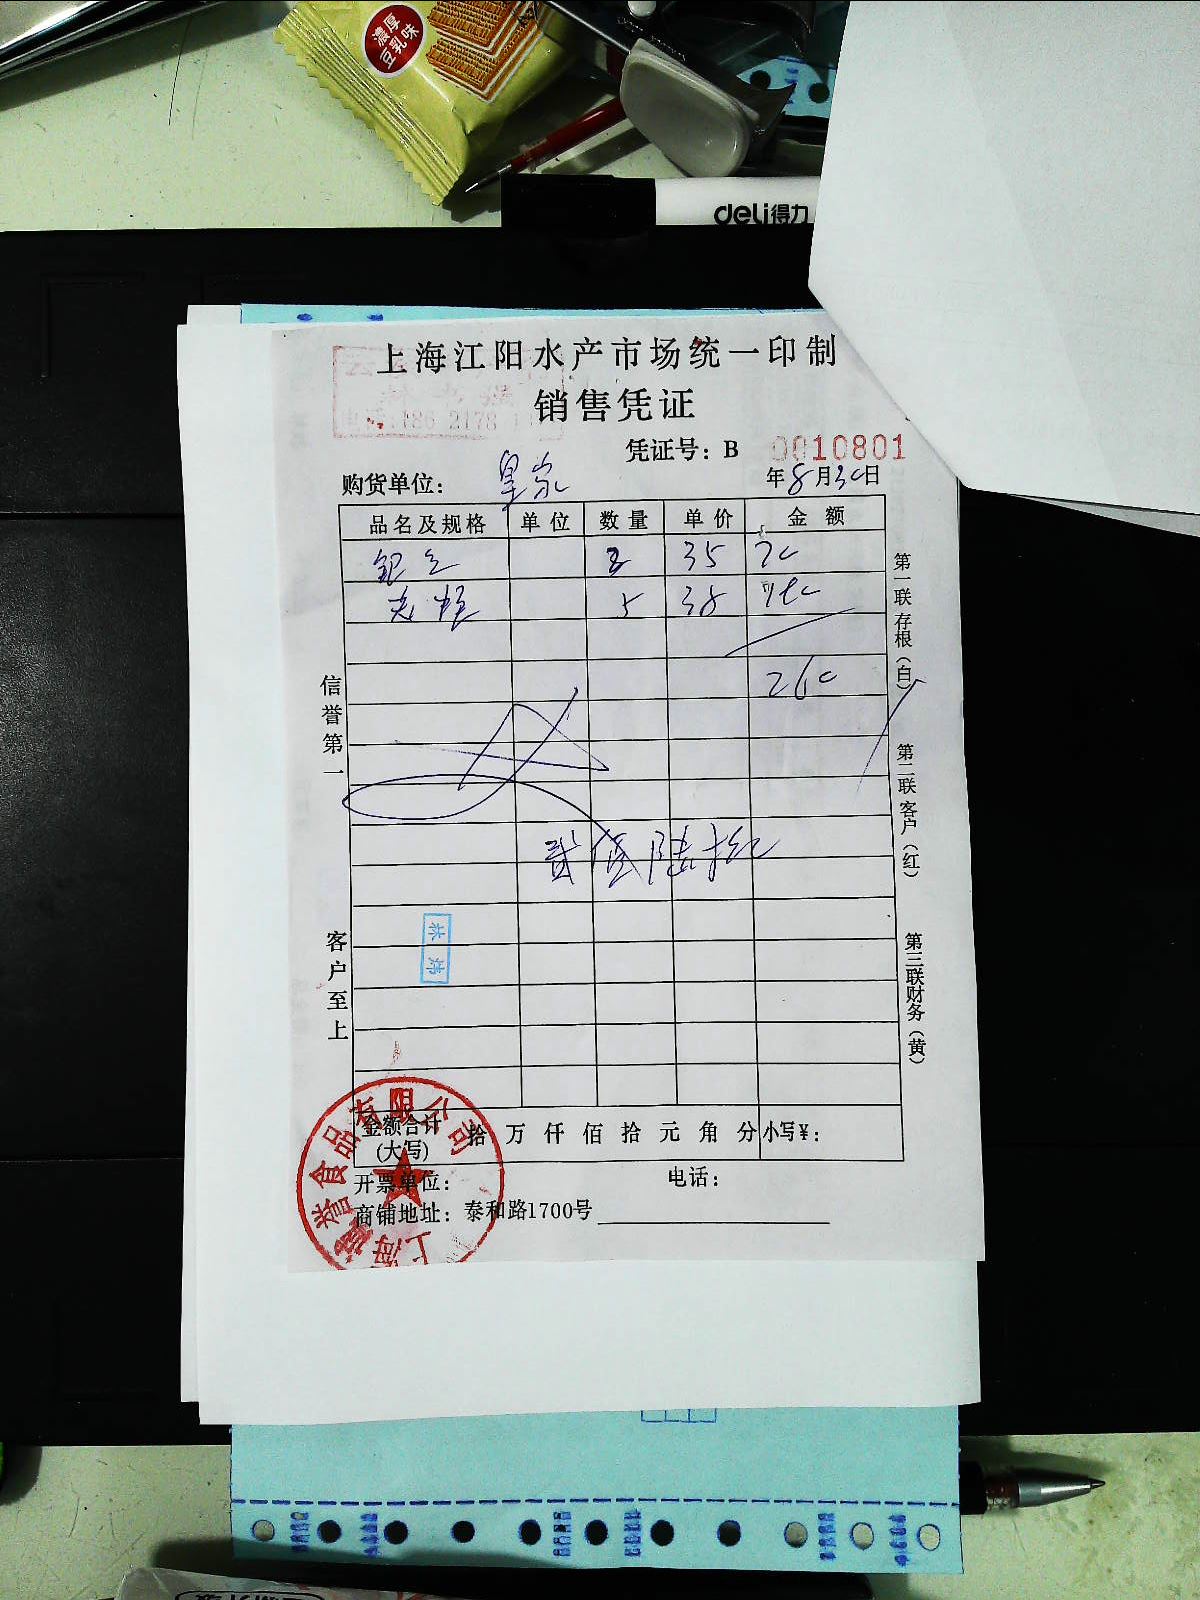 濃厚
豆乳味
deli得力
上海江阳水产市场统一印制
销售凭证
凭证号：B 0010801
购货单位： 皇家 年8月30日
品名及规格 单位 数量 单价 金额
2 35 70
5 38 190
260
贰佰陆拾
信誉第一
客户至上
第一联存根（白）
第二联客户（红）
第三联财务（黄）
金额合计
(大写) 拾万仟佰拾元角分 小写¥：
开票单位： 电话：
商铺地址：泰和路1700号
食品有限公司
上海